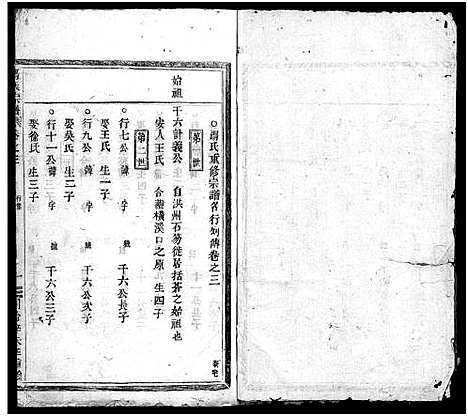 氏重修宗譜各行列傳卷之三
第一世
始祖
千六計義公 自洪州石芴徙居括蒼之始祖也
安人王氏 合葬橫溪口之原 生四子
第二世
行七公 諱 字 號 千六公長子
娶王氏 生一子
行九公 諱 字 號 千六公次子
娶吳氏 生二子
行十一公 諱 字 號 千六公三子
娶徐氏 生三子
行傳